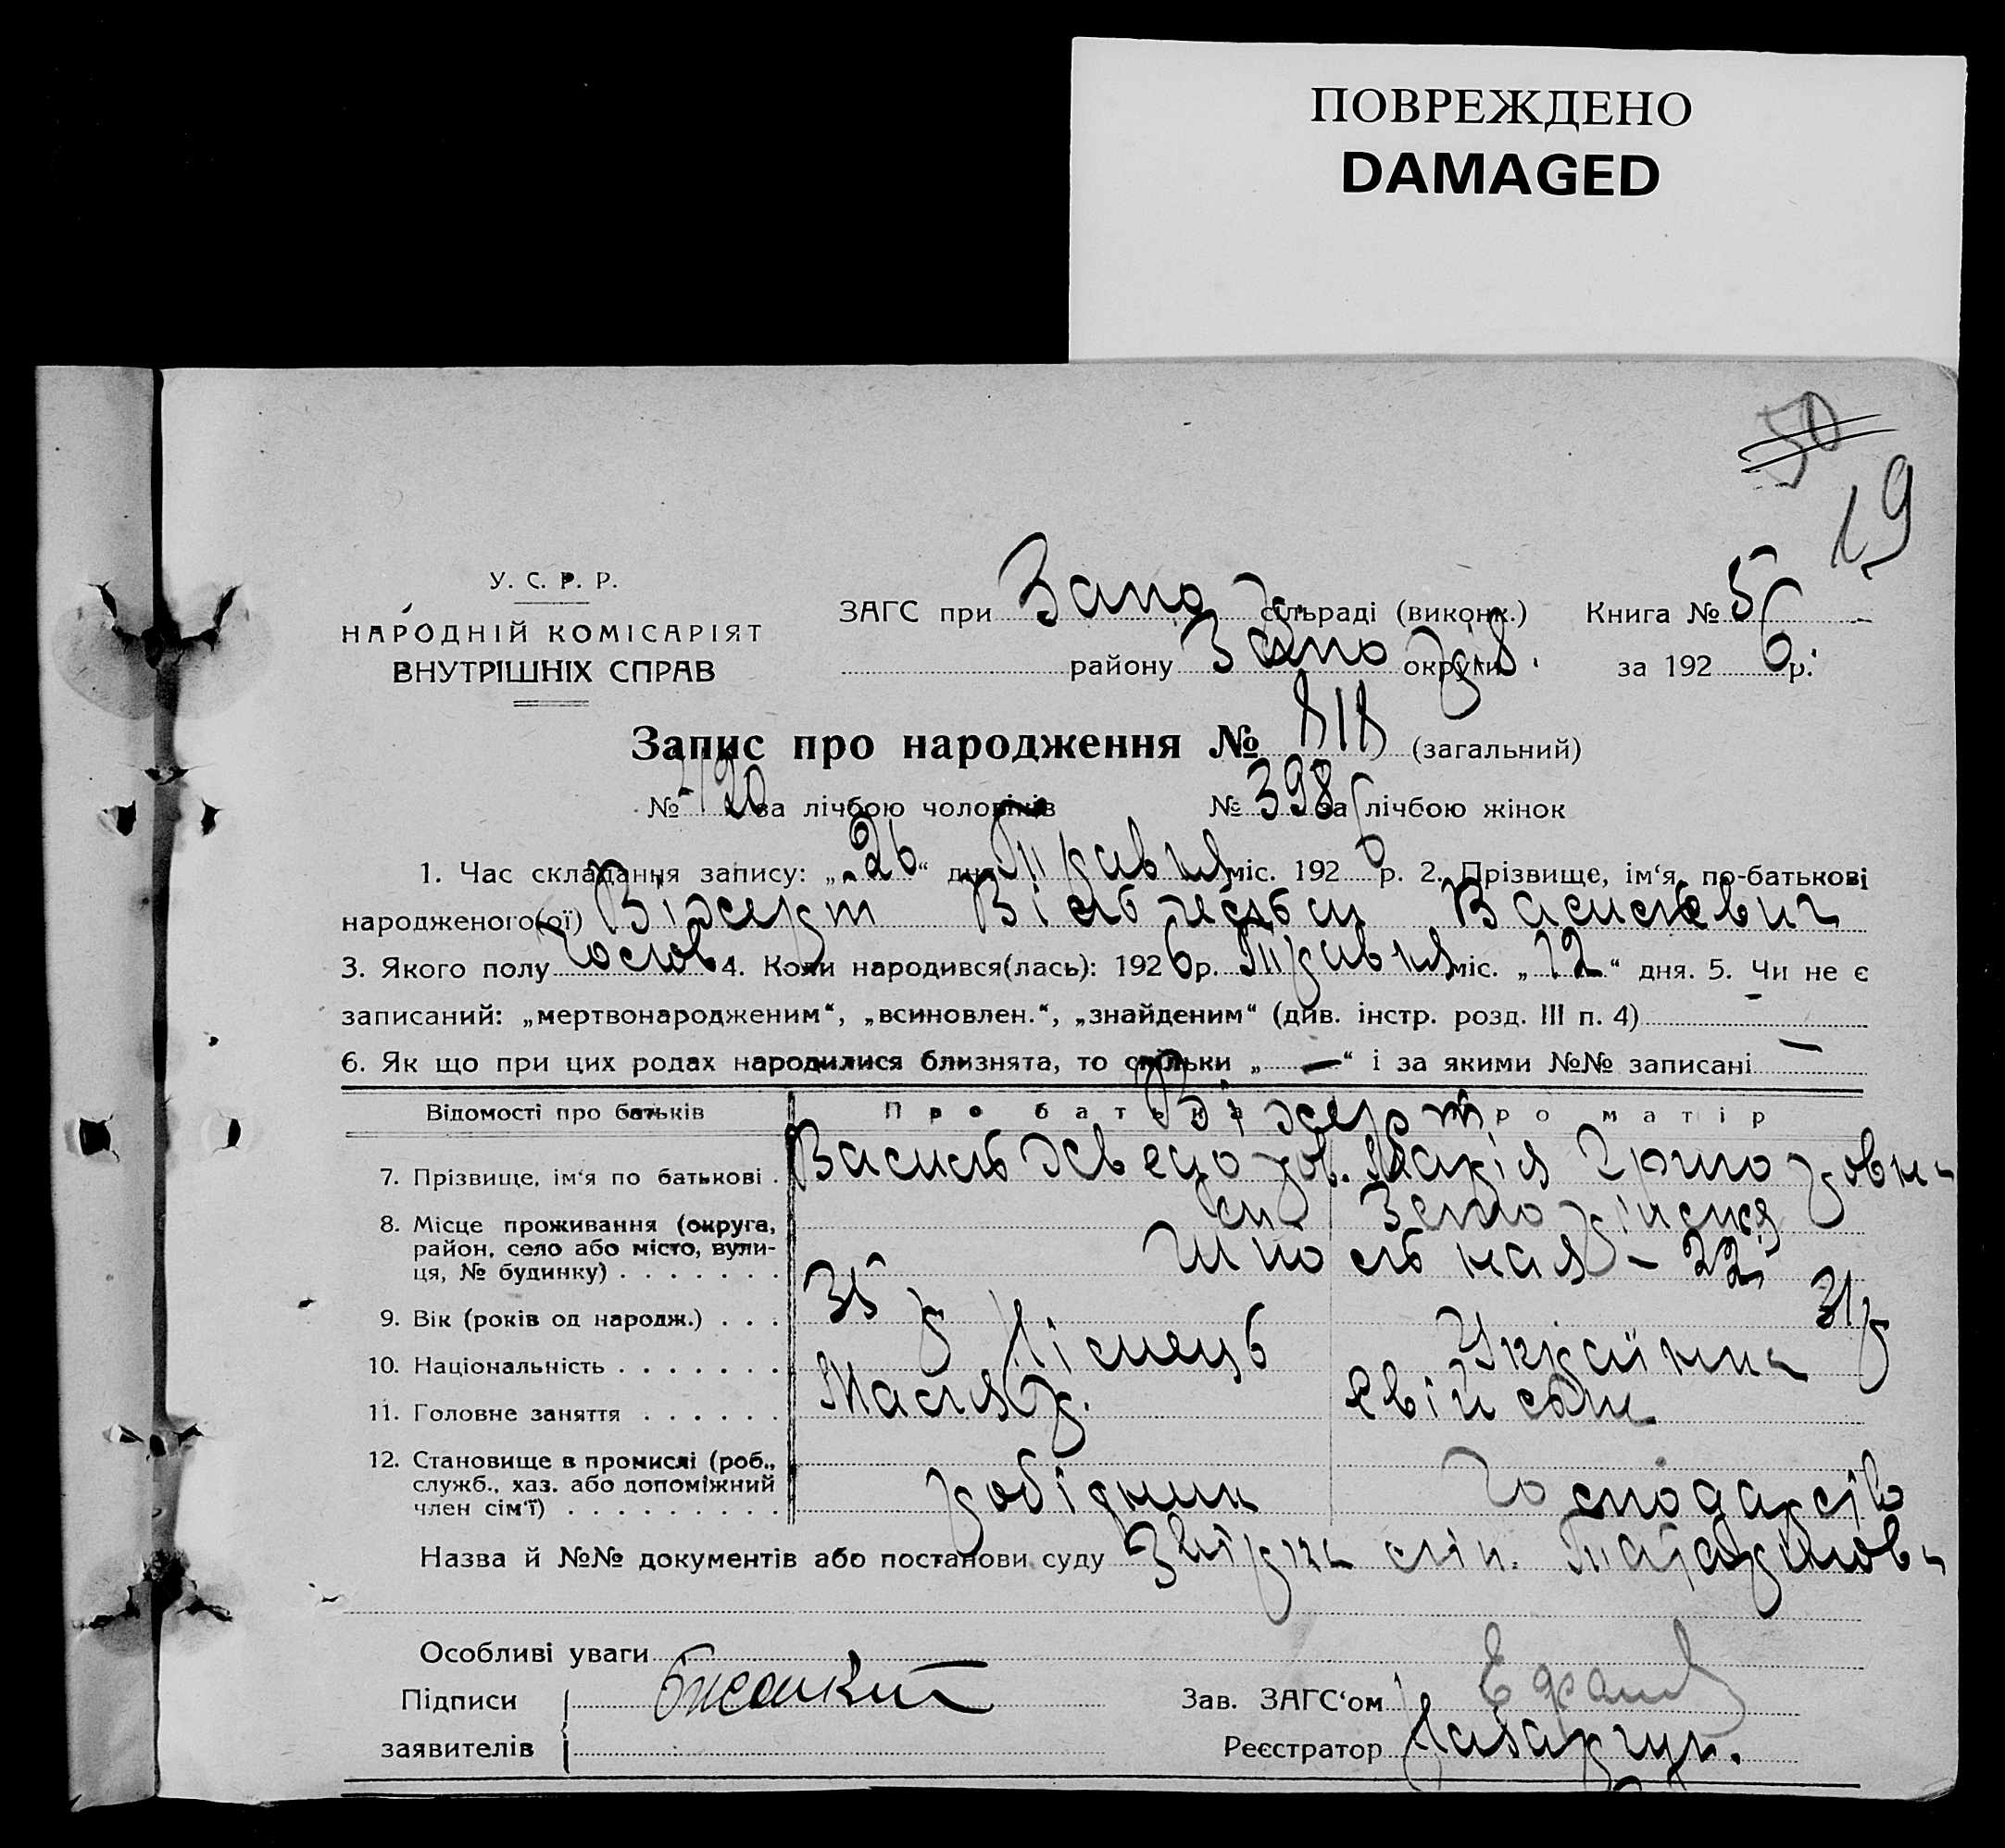 ПОВРЕЖДЕНО
DAMAGED
50
19
У. С. Р. Р.
НАРОДНІЙ КОМІСАРІЯТ
ВНУТРІШНІХ СПРАВ
ЗАГС при Запо сільраді (виконк.) Книга № 56
району Запо округи за 1926 р.
Запис про народження № 818 (загальний)
№ 420 за лічбою чоловіків № 398 за лічбою жінок
1. Час складання запису: „26“ дня Травня міс. 1926 р. 2. Прізвище, ім‘я, по-батькові
народженого(ої) Віхерт Вільгельм Васильевич
3. Якого полу чолов 4. Коли народився(лась): 1926 р. Травня міс. „12“ дня. 5. Чи не є
записаний: „мертвонародженим“, „всиновлен.“, „знайденим“ (див. інстр. розд. III п. 4) —
6. Як що при цих родах народилися близнята, то скільки „—“ і за якими №№ записані —
Відомості про батьків Про батька Про матір
Віхерт
7. Прізвище, ім‘я по батькові . Василь Марія Григоровна
8. Місце проживання (округа,
район, село або місто, вули-
ця, № будинку) . . . . . . . 22
9. Вік (років од народж.) . . . 35 р 31 р
10. Національність . . . . . . . Німець Українка
11. Головне заняття . . . . . . Маляр.
12. Становище в промислі (роб.,
служб., хаз. або допоміжний
член сім‘ї) . . . . . . . . . робідник
Назва й №№ документів або постанови суду
Особливі уваги
Підписи
заявителів
Зав. ЗАГС‘ом
Реєстратор